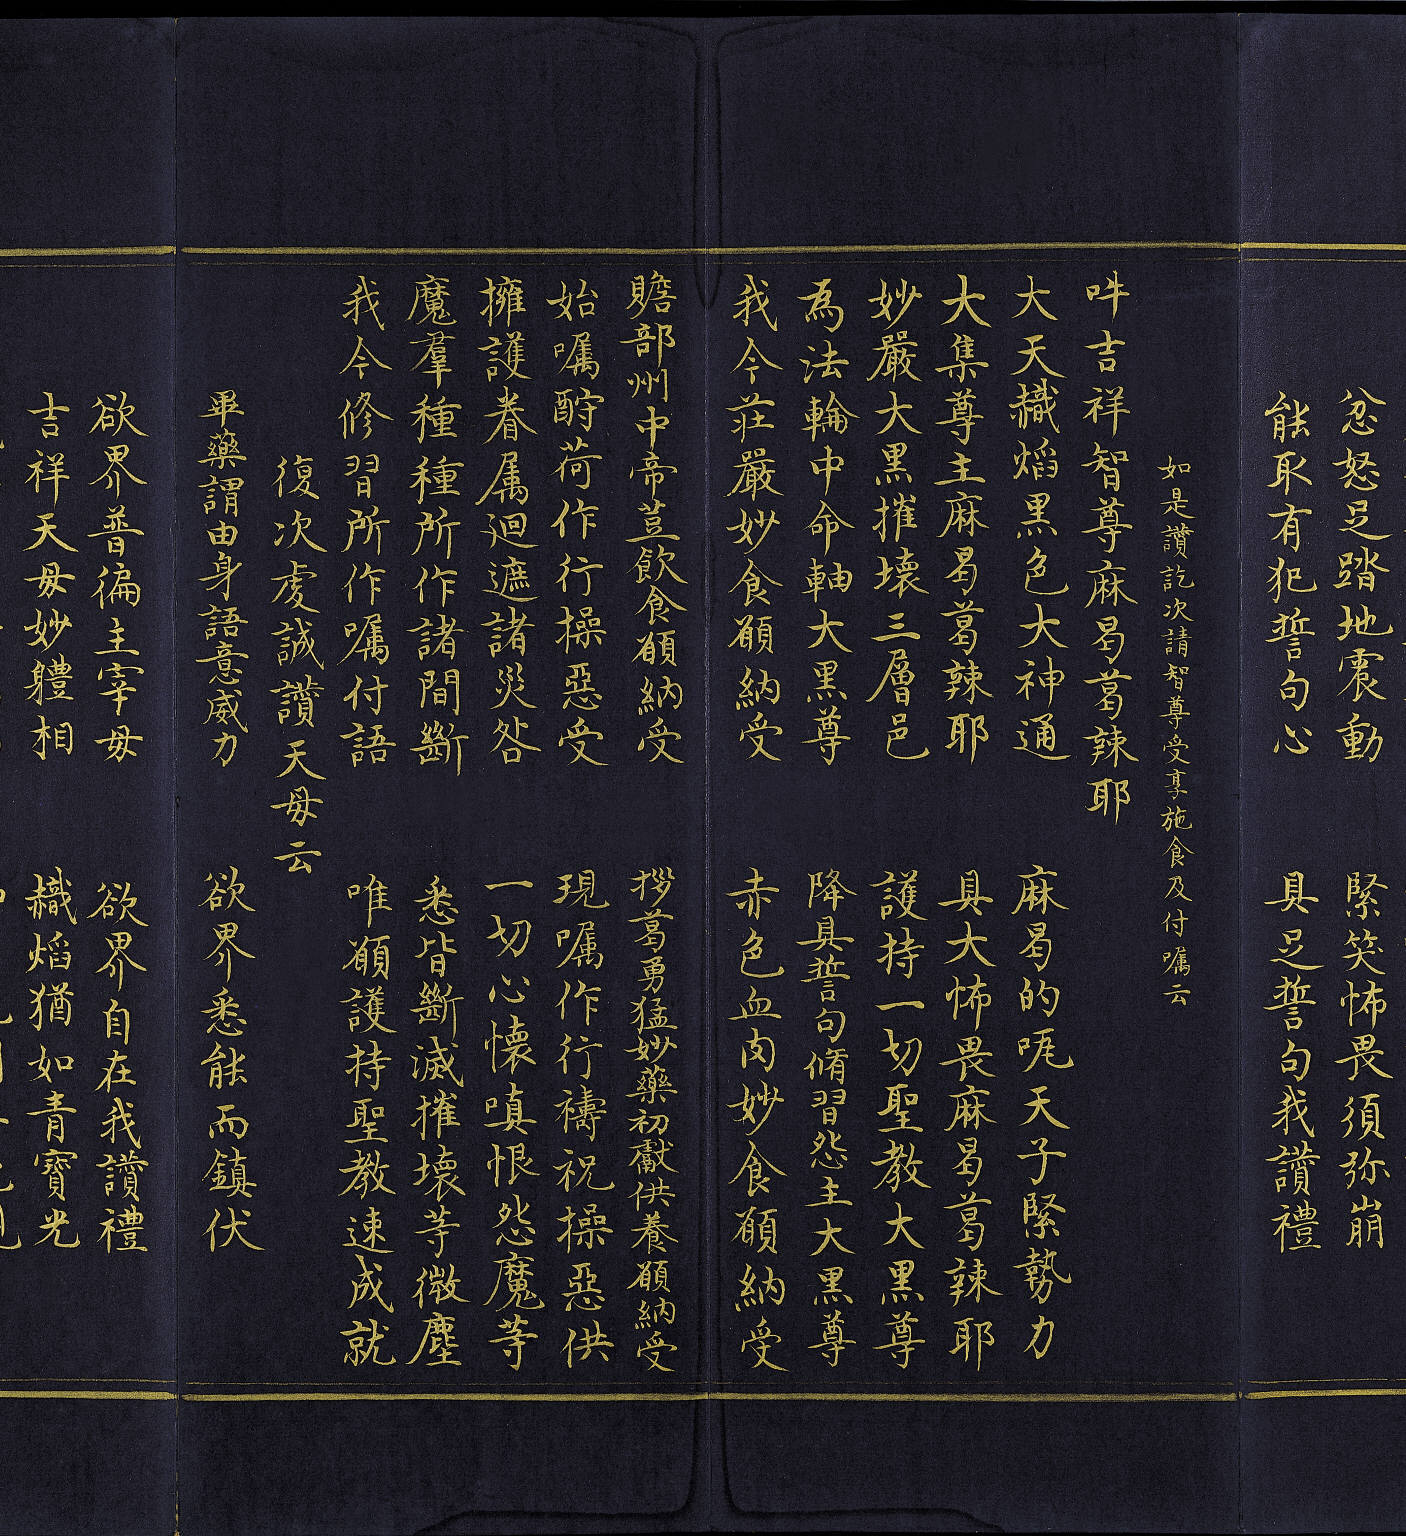 忿怒足踏地震動　緊笑怖畏須弥崩
能取有犯誓句心　具足誓句我讚禮
如是讚訖次請智尊受享施食及付囑云
吽吉祥智尊麻曷葛辣耶
大天熾焰黑色大神通　麻曷的㖇天子緊勢力
大集尊主麻曷葛辣耶　具大怖畏麻曷葛辣耶
妙嚴大黑摧壞三層邑　護持一切聖教大黑尊
為法輪中命軸大黑尊　降具誓句脩習怨主大黑尊
我今莊嚴妙食願納受　赤色血肉妙食願納受
贍部州中帝荳飲食願納受　拶葛勇猛妙藥初獻供養願納受
始囑酹荷作行操惡受　現囑作行禱祝操惡供
擁護眷属迴遮諸災咎　一切心懷嗔恨怨魔等
魔羣種種所作諸間斷　悉皆斷滅摧壞等微塵
我今修習所作囑付語　唯願護持聖教速成就
復次虔誠讚天母云
畢藥謂由身語意威力　欲界悉能而鎮伏
欲界普徧主宰母　欲界自在我讚禮
吉祥天母妙軆相　熾焰猶如青寶光